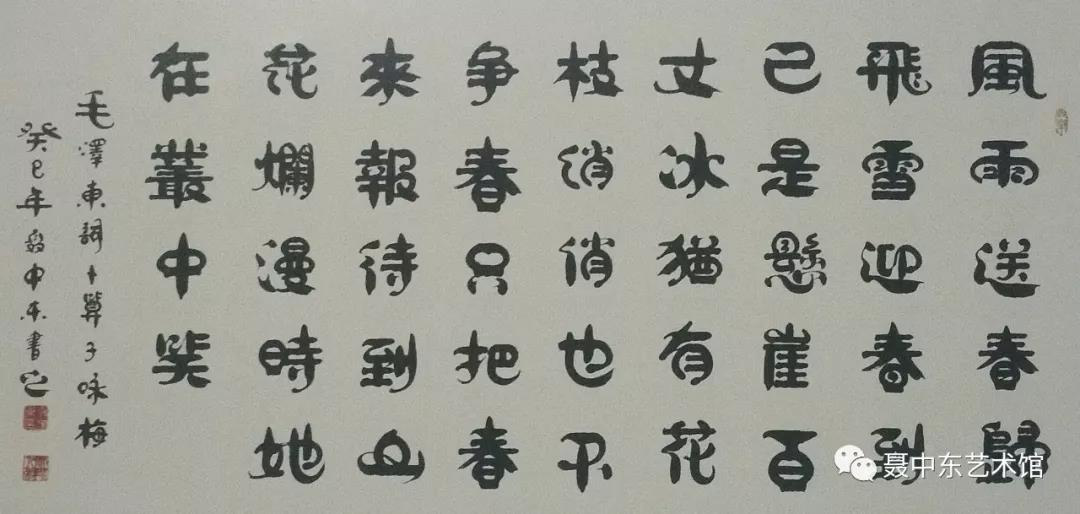 風雨送春歸
飛雪迎春到
已是懸崖百
丈冰猶有花
枝俏俏也不
争春只把春
來報待到山
花爛漫時她
在叢中笑
毛澤東詞卜算子咏梅
癸巳年聂中东書
聂中东艺术馆